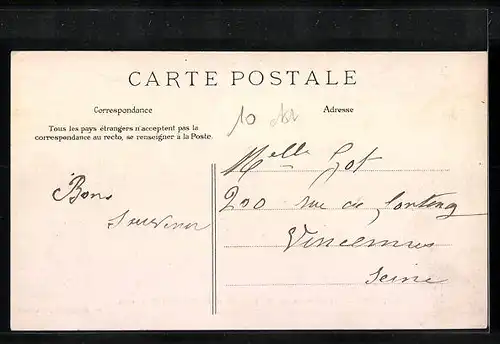 CARTE POSTALE
Correspondance
Adresse
Tous les pays étrangers n'acceptent pas la
correspondance au recto, se renseigner à la Poste.
10
Bons
Souvenir
Melle Got
200 rue de Fontenay
Vincennes
Seine